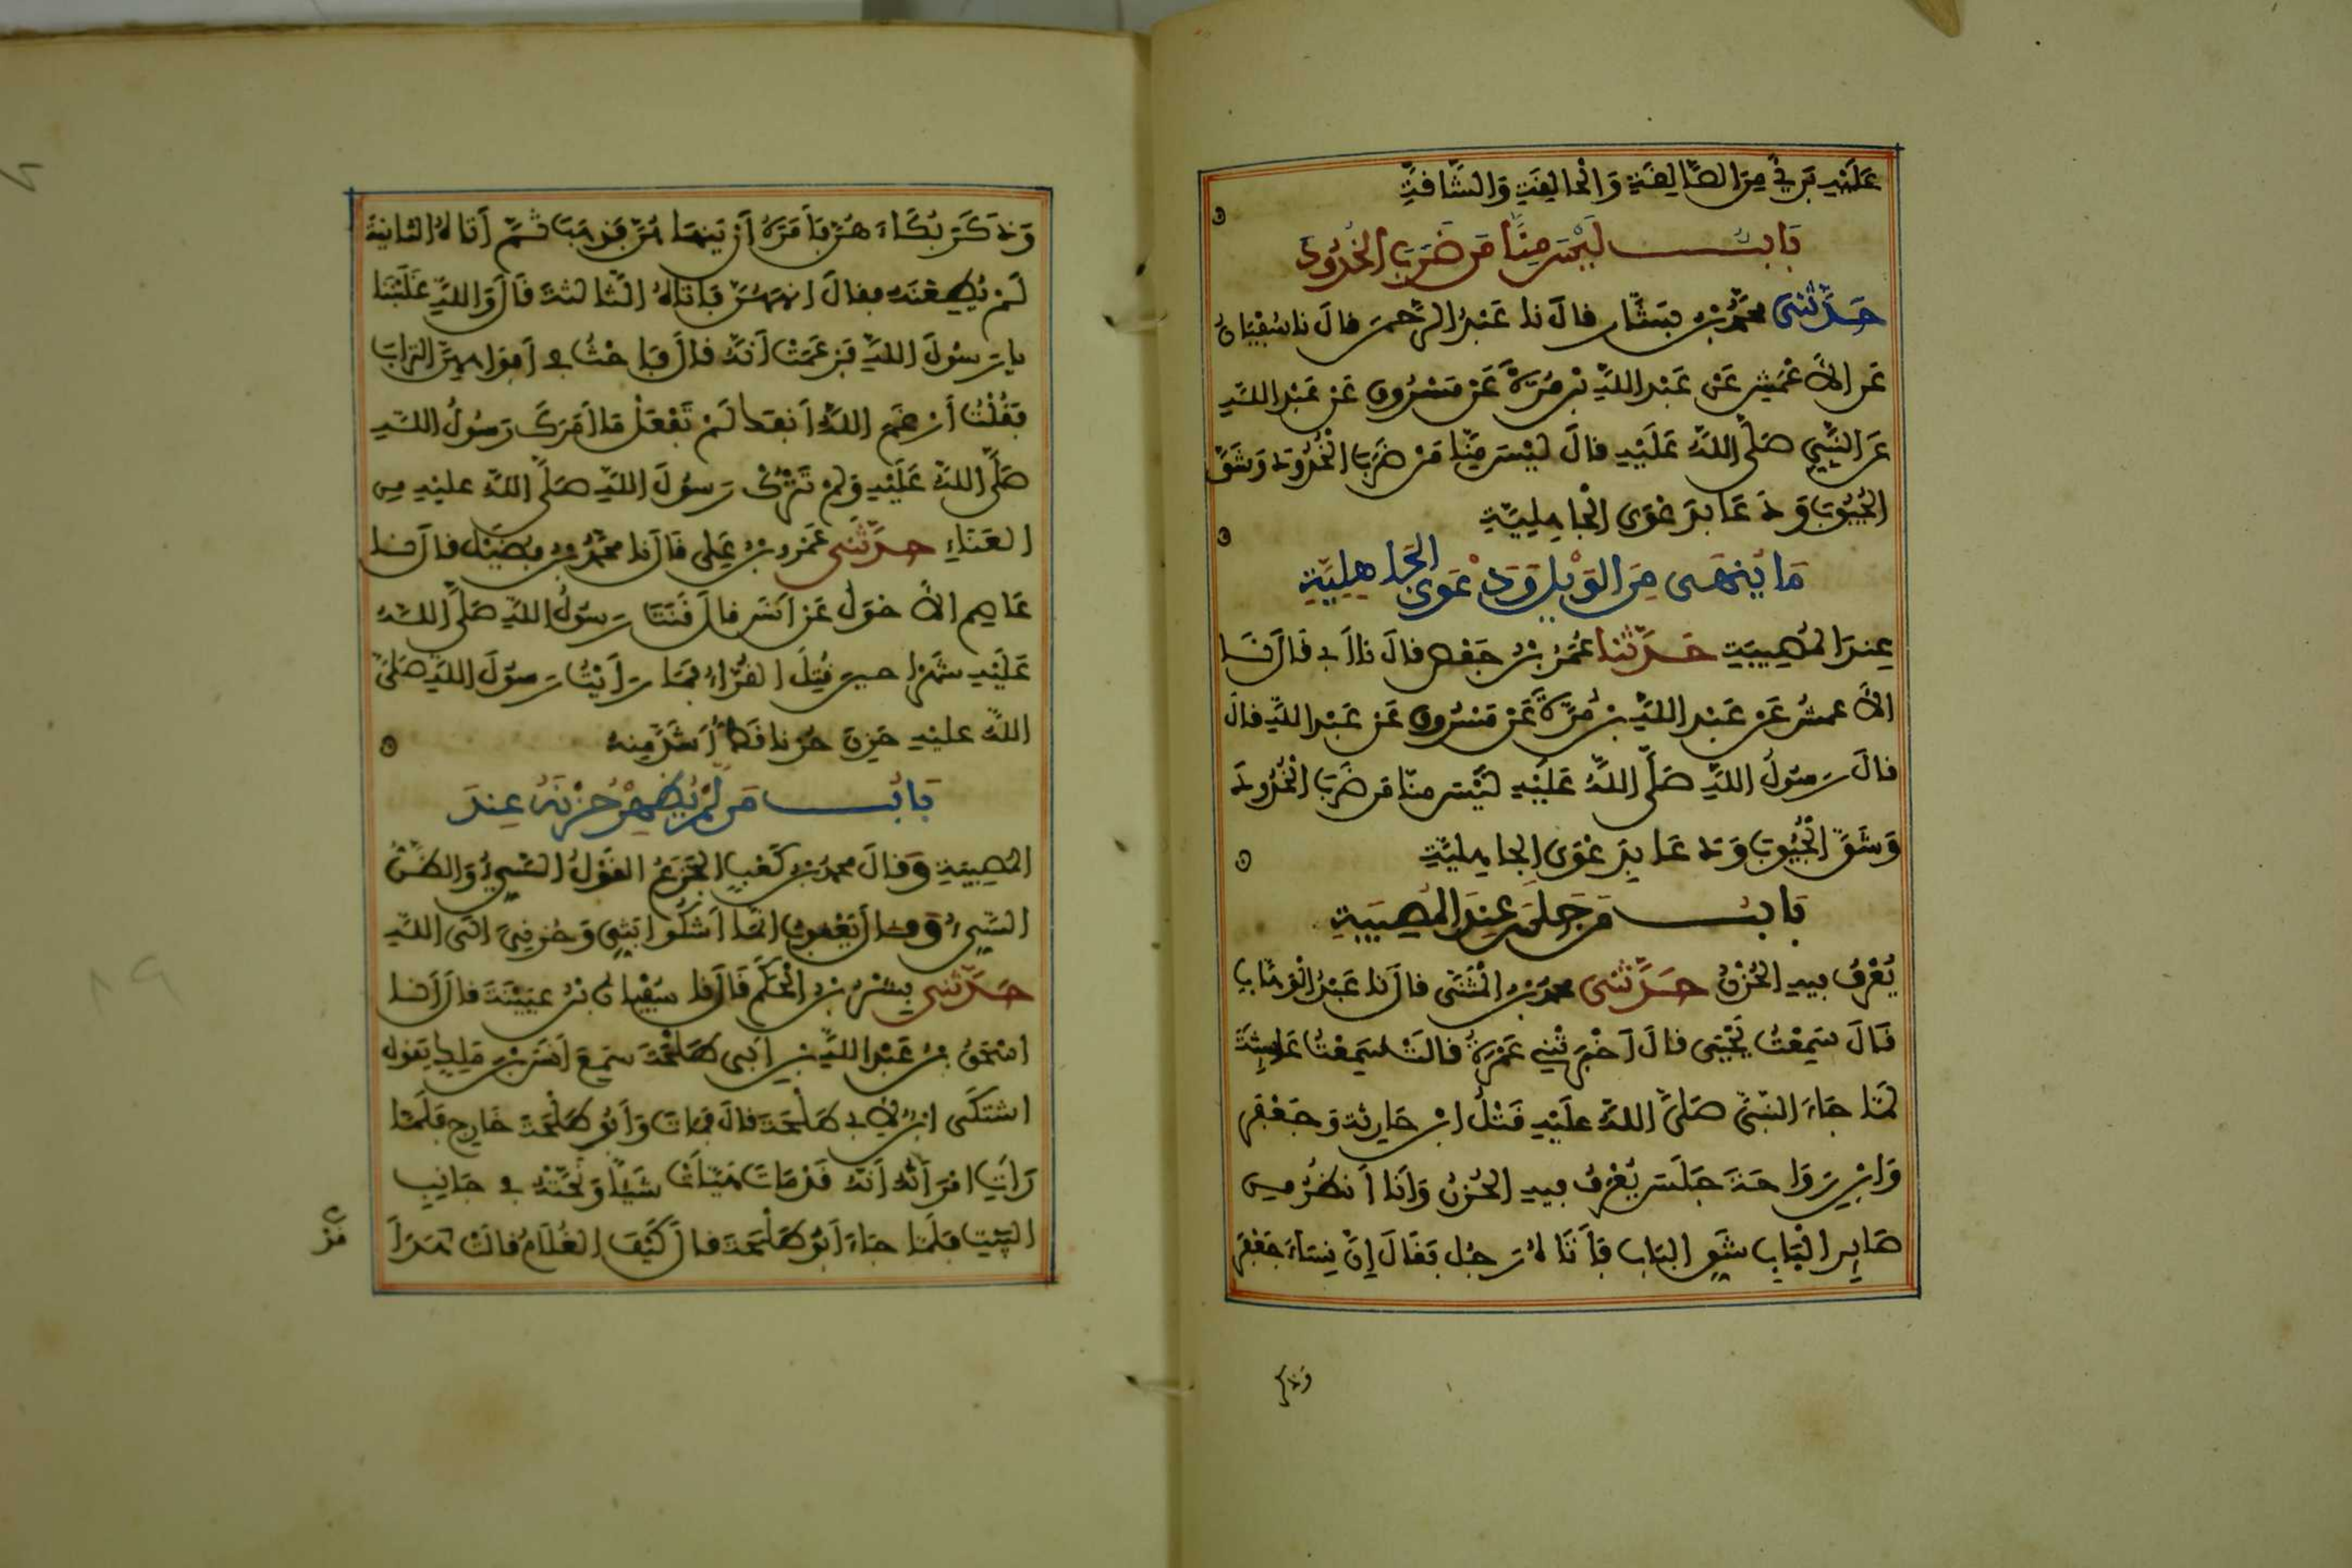 عَلَيْهِ بَرِئَ مِنَ الصَّالِقَةِ وَالْحَالِقَةِ وَالشَّاقَّةِ
بَابُ لَيْسَ مِنَّا مَن ضَرَبَ الْخُدُودَ
حَدَّثَنِي مُحَمَّدُ بْنُ بَشَّارٍ قالَ نا عَبْدُ الرَّحْمَنِ قالَ نا سُفْيَانُ
عَنِ الأَعْمَشِ عَنْ عَبْدِ اللَّهِ بْنِ مُرَّةَ عَنْ مَسْرُوقٍ عَنْ عَبْدِ اللَّهِ
عَنِ النَّبِيِّ صَلَّى اللَّهُ عَلَيْهِ قالَ لَيْسَ مِنَّا مَنْ ضَرَبَ الْخُدُودَ وَشَقَّ
الْجُيُوبَ وَدَعَا بِدَعْوَى الْجَاهِلِيَّةِ
مَا يُنْهَى مِنَ الْوَيْلِ وَدَعْوَى الْجَاهِلِيَّةِ
عِنْدَ الْمُصِيبَةِ حَدَّثَنَا عُمَرُ بْنُ حَفْصٍ قالَ نا أَبِي قَالَ نَا
الأَعمشُ عَنْ عَبْدِ اللَّهِ بْنِ مُرَّةَ عَنْ مَسْرُوقٍ عَنْ عَبْدِ اللَّهِ قالَ
قالَ رَسُولُ اللَّهِ صَلَّى اللَّهُ عَلَيْهِ لَيْسَ مِنَّا مَن ضَرَبَ الْخُدُودَ
وَشَقَّ الْجُيُوبَ وَدَعَا بِدَعْوَى الْجَاهِلِيَّةِ
بَابُ مَن جَلَسَ عِنْدَ الْمُصِيبَةِ
يُعْرَفُ فِيهِ الْحُزْنُ حَدَّثَنِي مُحَمَّدُ بْنُ الْمُثَنَّى قالَ نا عَبْدُ الْوَهَّابِ
قَالَ سَمِعْتُ يَحْيَى قالَ أَخْبَرَتْنِي عَمْرَةُ قالَتْ سَمِعْتُ عَائِشَةَ
لَمَّا جَاءَ النَّبِيَّ صَلَّى اللَّهُ عَلَيْهِ قَتْلُ ابْنِ حَارِثَةَ وَجَعْفَرٍ
وَابْنِ رَوَاحَةَ جَلَسَ يُعْرَفُ فِيهِ الْحُزْنُ وَأَنَا أَنْظُرُ مِن
صَايِرِ الْبَابِ شَقِّ الْبَابِ فَأَتَاهُ رَجُلٌ فَقَالَ إِنَّ نِسَاءَ جَعْفَرٍ
وذكر
وَذَكَرَ بُكَاءَهُنَّ فَأَمَرَهُ أَنْ يَنْهَاهُنَّ فَذَهَبَ ثُمَّ أَتَاهُ الثَّانِيَةَ
لَمْ يُطِعْنَهُ فقالَ انْهَهُنَّ فَأَتَاهُ الثَّالِثَةَ قَالَ وَاللَّهِ غَلَبْنَنَا
يا رَسُولَ اللَّهِ فَزَعَمَتْ أَنَّهُ قالَ فَاحْثُ فِي أَفْوَاهِهِنَّ التُّرَابَ
فَقُلْتُ أَرْغَمَ اللَّهُ أَنْفَكَ لَمْ تَفْعَلْ مَا أَمَرَكَ رَسُولُ اللَّهِ
صَلَّى اللَّهُ عَلَيْهِ وَلَمْ تَتْرُكْ رَسُولَ اللَّهِ صَلَّى اللَّهُ عليْهِ مِنَ
الْعَنَاءِ حَدَّثَنِي عَمْرُو بْنُ عَلِي قَالَ نا مُحَمَّدُ بْنُ فُضَيْلٍ قالَ نَا
عَاصِم الأَحْوَلُ عَنْ أَنَسٍ قالَ قَنَتَ رَسُولُ اللَّهِ صَلَّى اللَّهُ
عَلَيْهِ شَهْرًا حينَ قُتِلَ الْقُرَّاءُ فَمَا رَأَيْتُ رَسُولَ اللَّهِ صَلَّى
اللَّهُ عليْهِ حَزِنَ حُزْنًا قَطُّ أَشَدَّ مِنْهُ
بَابُ مَن لَمْ يُظْهِرْ حُزْنَهُ عِنْدَ
الْمُصِيبَةِ وَقالَ مُحَمَّدُ بْنُ كَعْبٍ الْجَزَعُ الْقَوْلُ السَّيِّئُ وَالظَّنُّ
السَّيِّئُ وَقالَ يَعْقُوبُ إِنَّمَا أَشْكُو بَثِّي وَحُزْنِيَ الَى اللَّهِ
حَدَّثَنِي بِشْرُ بْنُ الْحَكَمِ قَالَ نَا سُفْيَانُ بْنُ عُيَيْنَةَ قالَ أَنَا
إسْحَقُ بْنُ عَبْدِ اللَّهِ بْنِ أَبِي طَلْحَةَ سَمِعَ أَنَسَ بْنَ مَلِكٍ يَقولُ
اشْتَكَى ابْنٌ لِأَبِي طَلْحَةَ قالَ فَمَاتَ وَأَبُو طَلْحَةَ خَارِجٌ فَلَمَّا
رَأَتِ امْرَأَتُهُ أَنَّهُ قَدْ مَاتَ هَيَّأَتْ شَيْئًا وَنَحَّتْهُ فِي جَانِبِ
الْبَيْتِ فَلَمَّا جَاءَ أَبُو طَلْحَةَ قالَ كَيْفَ الْغُلَامُ قالَتْ هَدَأَ